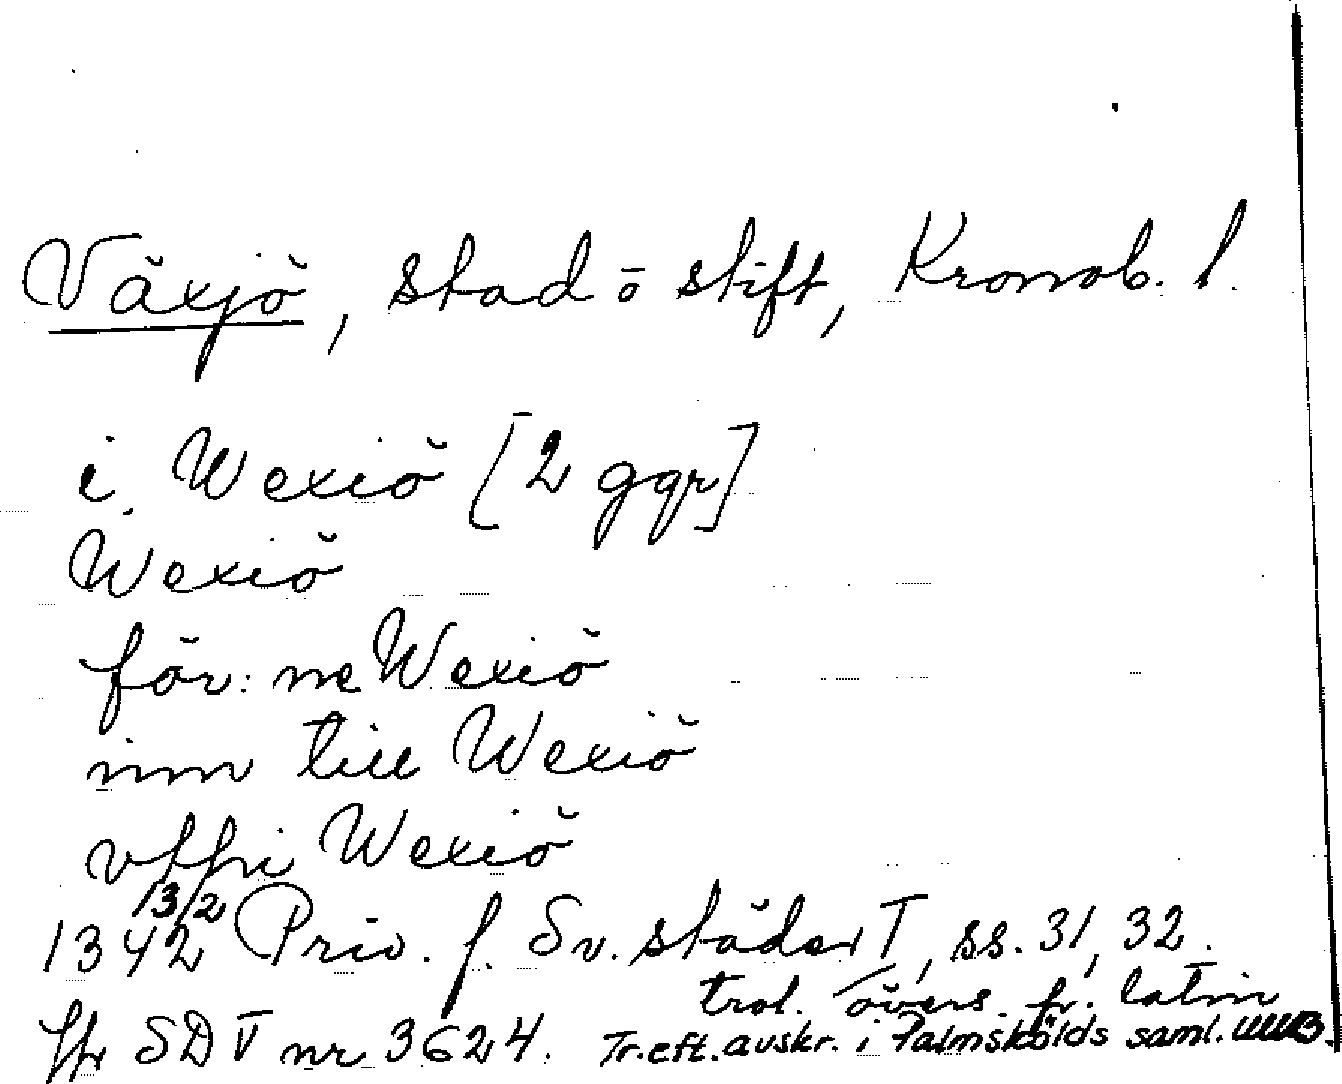 Växjö, stad o stift, Kronob. l.
i Wexiö [2 ggr]
Wexiö
för: ne Wexiö
inn till Wexiö
vppi Wexiö
1342 13/2 Priv. f. Sv. städer I, ss. 31, 32.
trol. övers. fr. latin
Jfr SD V nr 3624. Tr. eft. avskr. i Palmskölds saml. UUB.